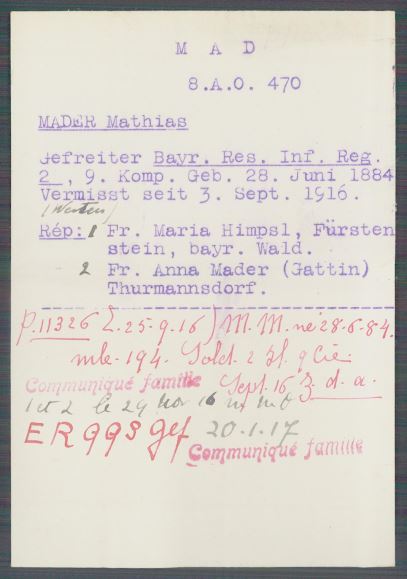 M A D
8.A.O. 470
MADER Mathias
Gefreiter Bayr. Res. Inf. Reg.
2 , 9. Komp. Geb. 28. Juni 1884
Vermisst seit 3. Sept. 1916.
(Westen)
Rép: 1 Fr. Maria Himpsl, Fürsten
stein, bayr. Wald.
2 Fr. Anna Mader (Gattin)
Thurmannsdorf.
P. 11326 L. 25-9-16) M. M. né 28-6-84.
mle. 194. Sold. 2 9 Cie
Communiqué famille Sept. 16 d. a.
1 et 2 le 29 Nov 16
ER 993 gef 20-1-17
Communiqué famille